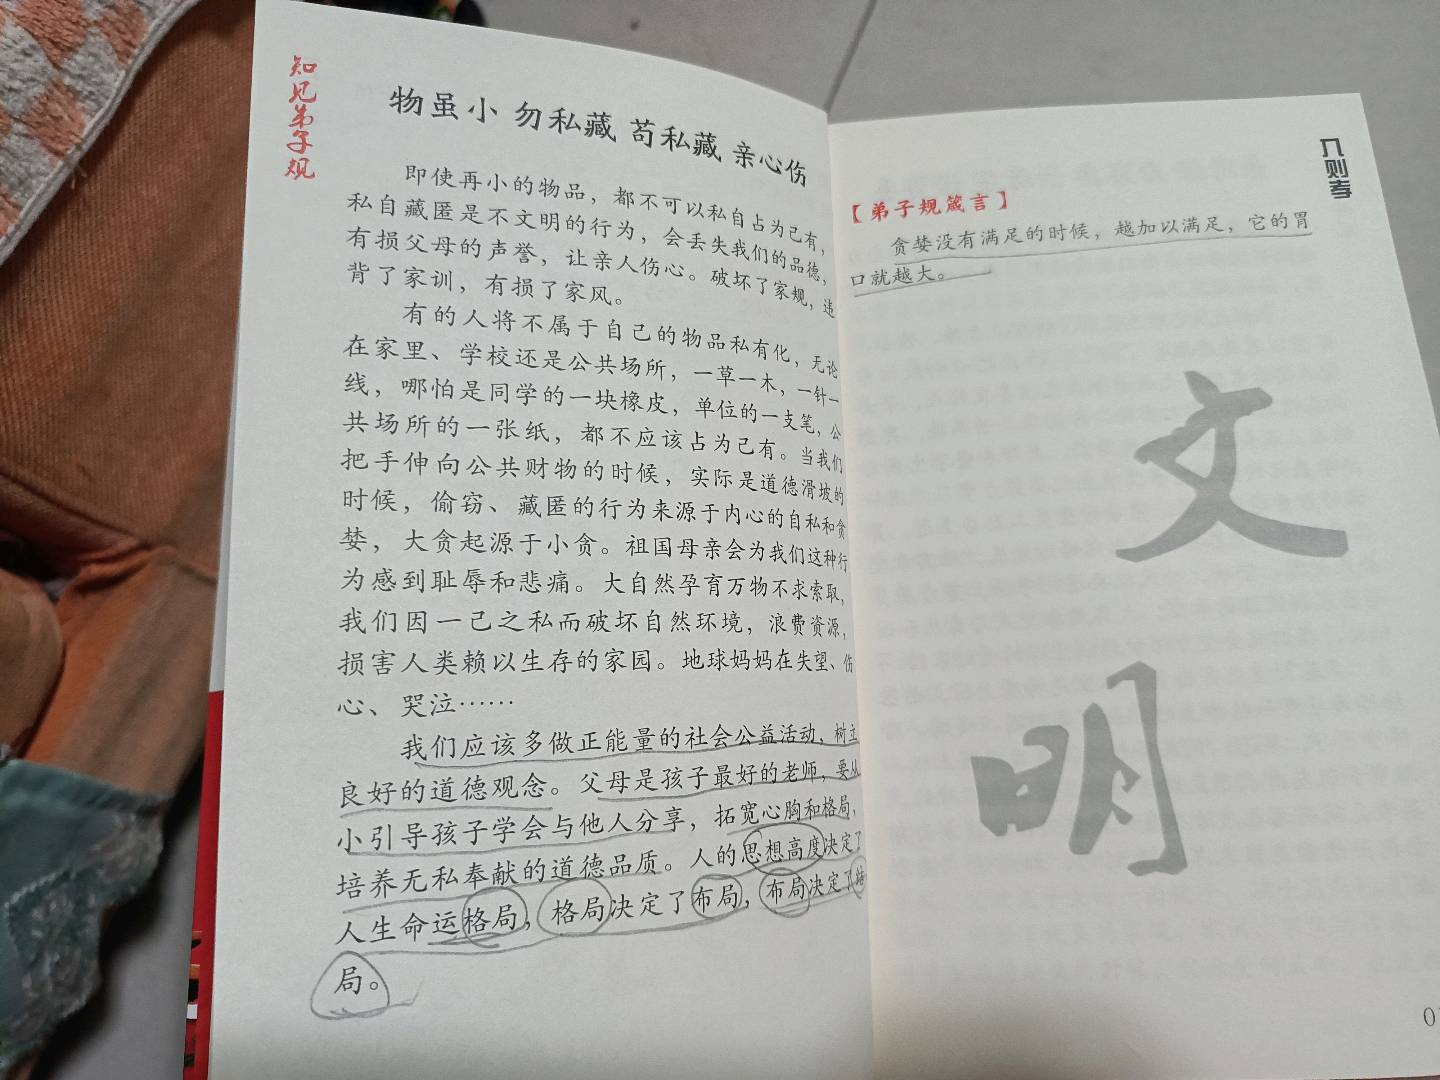 知见弟子规
物虽小 勿私藏 苟私藏 亲心伤
即使再小的物品，都不可以私自占为己有，
私自藏匿是不文明的行为，会丢失我们的品德，
有损父母的声誉，让亲人伤心。破坏了家规，违
背了家训，有损了家风。
有的人将不属于自己的物品私有化，无论
在家里、学校还是公共场所，一草一木，一针一
线，哪怕是同学的一块橡皮，单位的一支笔，公
共场所的一张纸，都不应该占为己有。当我们
把手伸向公共财物的时候，实际是道德滑坡的
时候，偷窃、藏匿的行为来源于内心的自私和贪
婪，大贪起源于小贪。祖国母亲会为我们这种行
为感到耻辱和悲痛。大自然孕育万物不求索取，
我们因一己之私而破坏自然环境，浪费资源，
损害人类赖以生存的家园。地球妈妈在失望、伤
心、哭泣……
我们应该多做正能量的社会公益活动，树立
良好的道德观念。父母是孩子最好的老师，要从
小引导孩子学会与他人分享，拓宽心胸和格局，
培养无私奉献的道德品质。人的思想高度决定了
人生命运格局，格局决定了布局，布局决定了结
局。
入则孝
【弟子规箴言】
贪婪没有满足的时候，越加以满足，它的胃
口就越大。
文
明